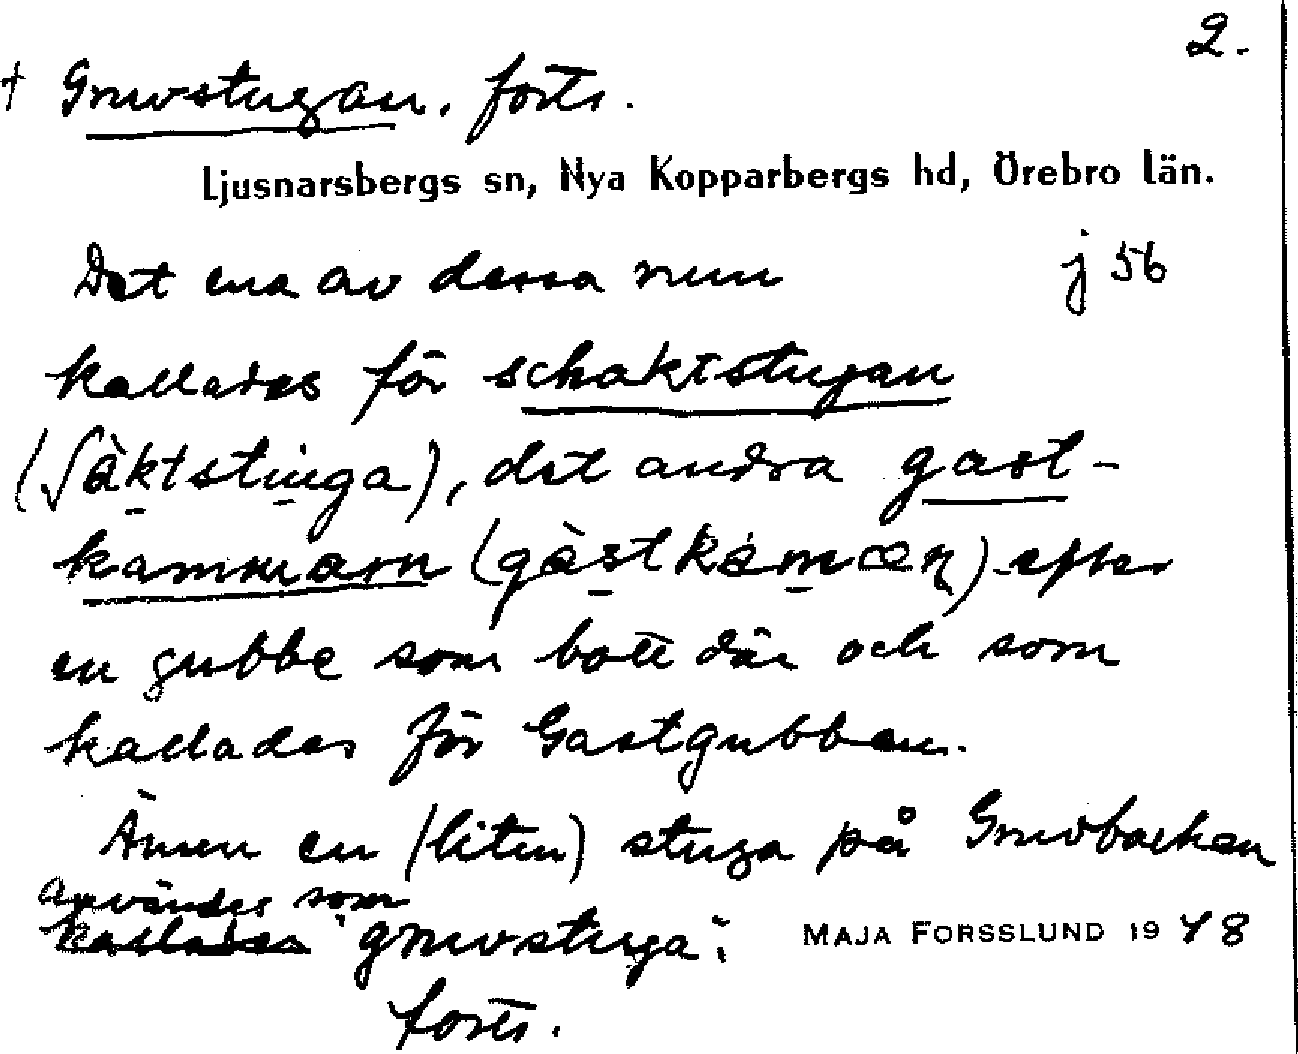 2.
† Gruvstugan, forts.
Ljusnarsbergs sn, Nya Kopparbergs hd, Örebro län.
Det ena av dessa rum j 56
kallades för schaktstugan
(ʃàktstùga), det andra gast-
kammarn (gàstkámæṇ) efter
en gubbe som bott där och som
kallades för Gastgubben.
Även en (liten) stuga på Gruvbacken
användes som
kallades "gruvstuga". MAJA FORSSLUND 1948
forts.